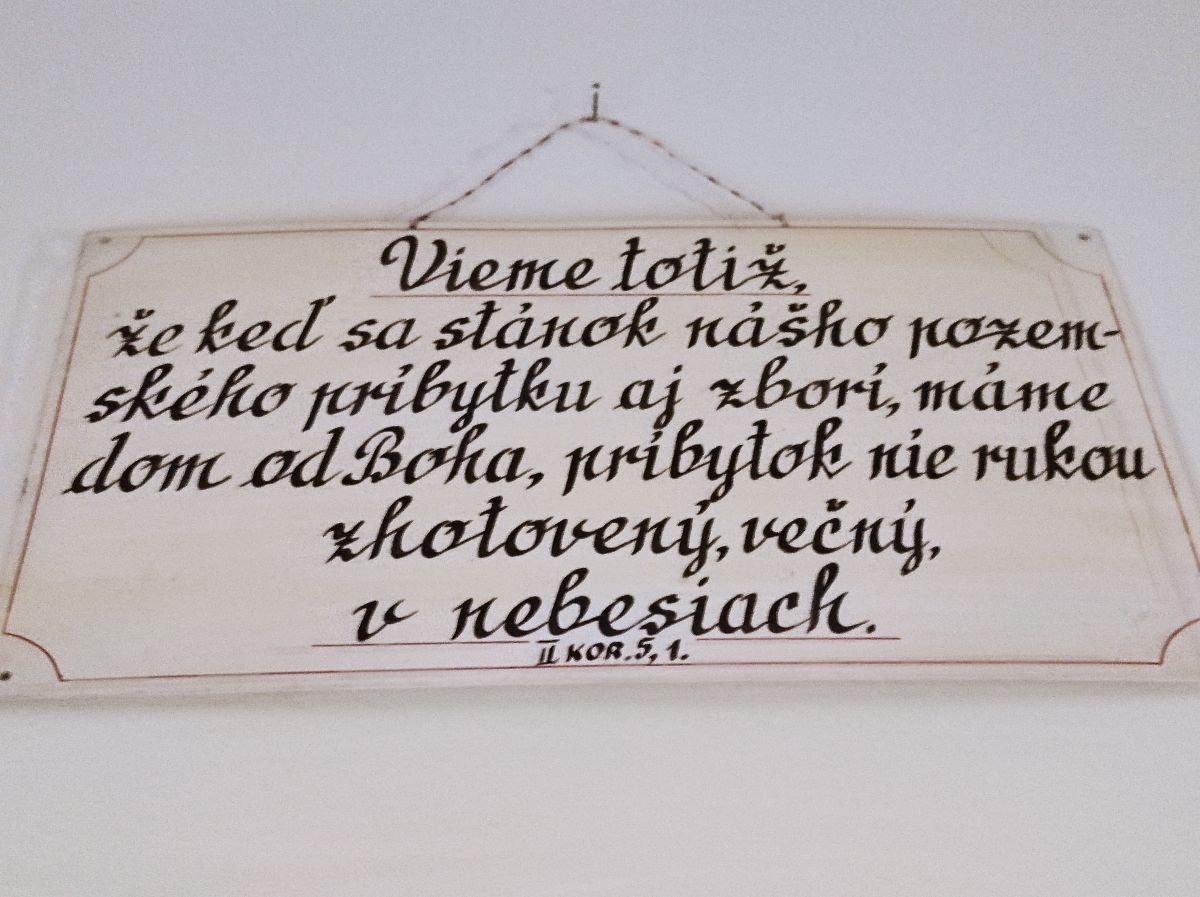 Vieme totiž,
že keď sa stánok nášho pozem-
ského príbytku aj zborí, máme
dom od Boha, príbytok nie rukou
zhotovený, večný,
v nebesiach.
II KOR. 5, 1.